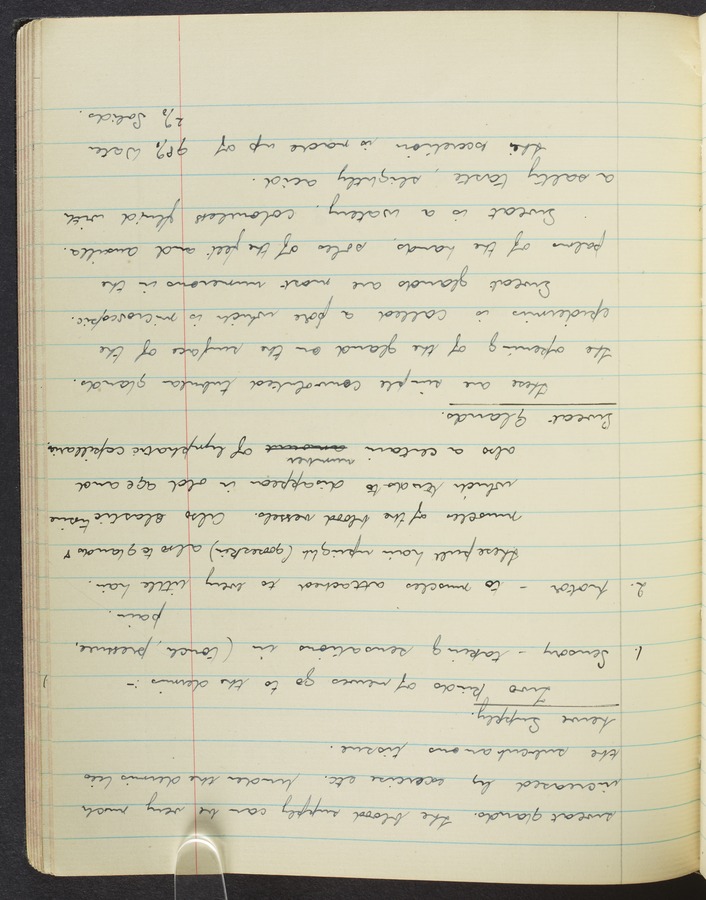 sweat glands. The blood supply can be very much
increased by exercise etc. Under the dermis lies
the subcutan ous tissue.
Nerve Supply.
Two kinds of nerves go to the dermis :-
1. Sensory - taking sensations in (touch, pressure,
pain.
2. Motor - to muscles attached to every little hair.
these pull hair upright (gooseskin) also to glands &
muscles of the blood vessels. Also elastic tissue
which tends to disappear in old age and
also a certain amount number of lymphatic capillaries
Sweat Glands.
These are simple convoluted tubular glands.
the opening of the gland on the surface of the
epidermis is called a pore which is microscopic.
Sweat glands are most numerous in the
palms of the hands, soles of the feet and auxilla.
Sweat is a watery, colourless fluid with
a salty taste, slightly acid.
the secretion is made up of 98% Water
2% Solids.